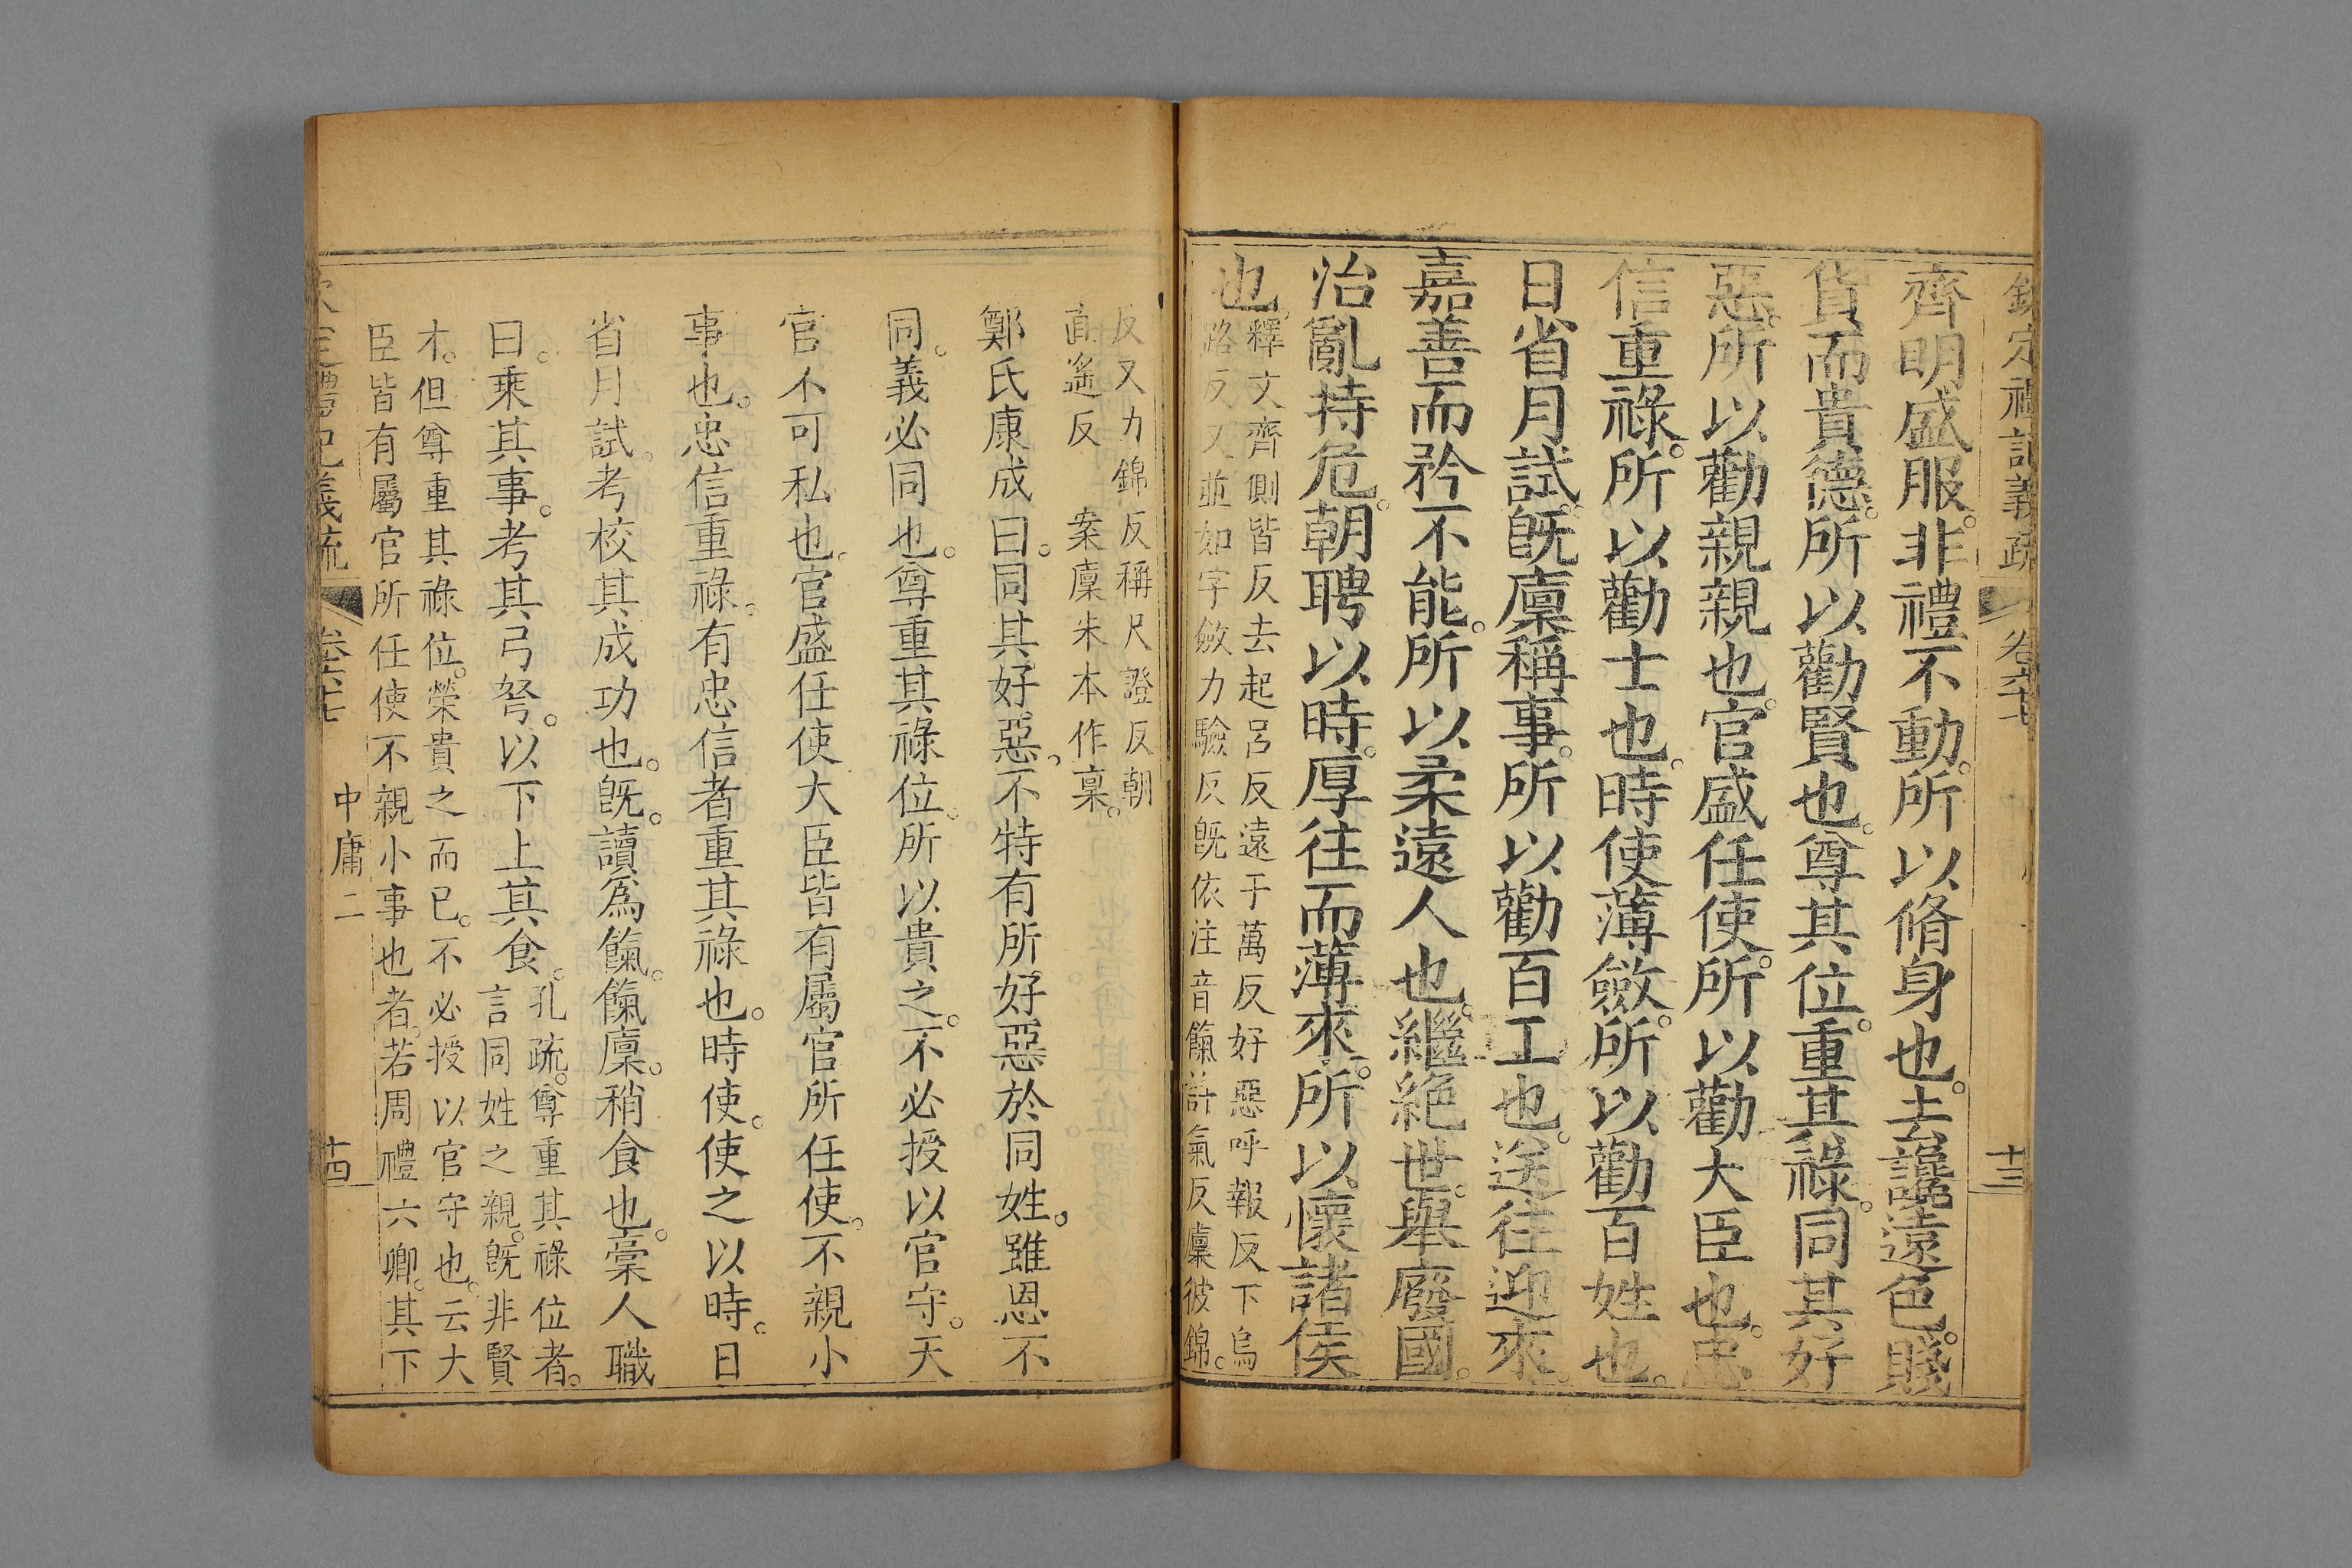 欽定禮記義疏 卷六十七 十三
齊明盛服。非禮不動。所以脩身也。去讒遠色。賤
貨而貴德。所以勸賢也。尊其位。重其祿。同其好
惡。所以勸親親也。官盛任使。所以勸大臣也。忠
信重祿。所以勸士也。時使薄斂。所以勸百姓也。
日省月試。旣廩稱事。所以勸百工也。送往迎來。
嘉善而矜不能。所以柔遠人也。繼絶世。舉廢國。
治亂持危。朝聘以時。厚往而薄來。所以懷諸侯
也。
釋文齊側皆反去起呂反遠于萬反好惡呼報反下烏
路反又並如字斂力驗反旣依注音餼許氣反廩彼錦。
反又力錦反稱尺證反朝
直遙反 案廩朱本作稟。
鄭氏康成曰。同其好惡。不特有所好惡於同姓。雖恩不
同。義必同也。尊重其祿位。所以貴之。不必授以官守。天
官不可私也。官盛任使大臣皆有屬官所任使。不親小
事也。忠信重祿。有忠信者重其祿也。時使。使之以時。日
省月試。考校其成功也。旣。讀爲餼。餼廩。稍食也。稾人職
曰。乘其事。考其弓弩。以下上其食。
孔疏。尊重其祿位者。
言同姓之親。旣非賢
才。但尊重其祿位。榮貴之而已。不必授以官守也。云大
臣皆有屬官所任使不親小事也者。若周禮六卿。其下
欽定禮記義疏 卷六十七 中庸二 十四